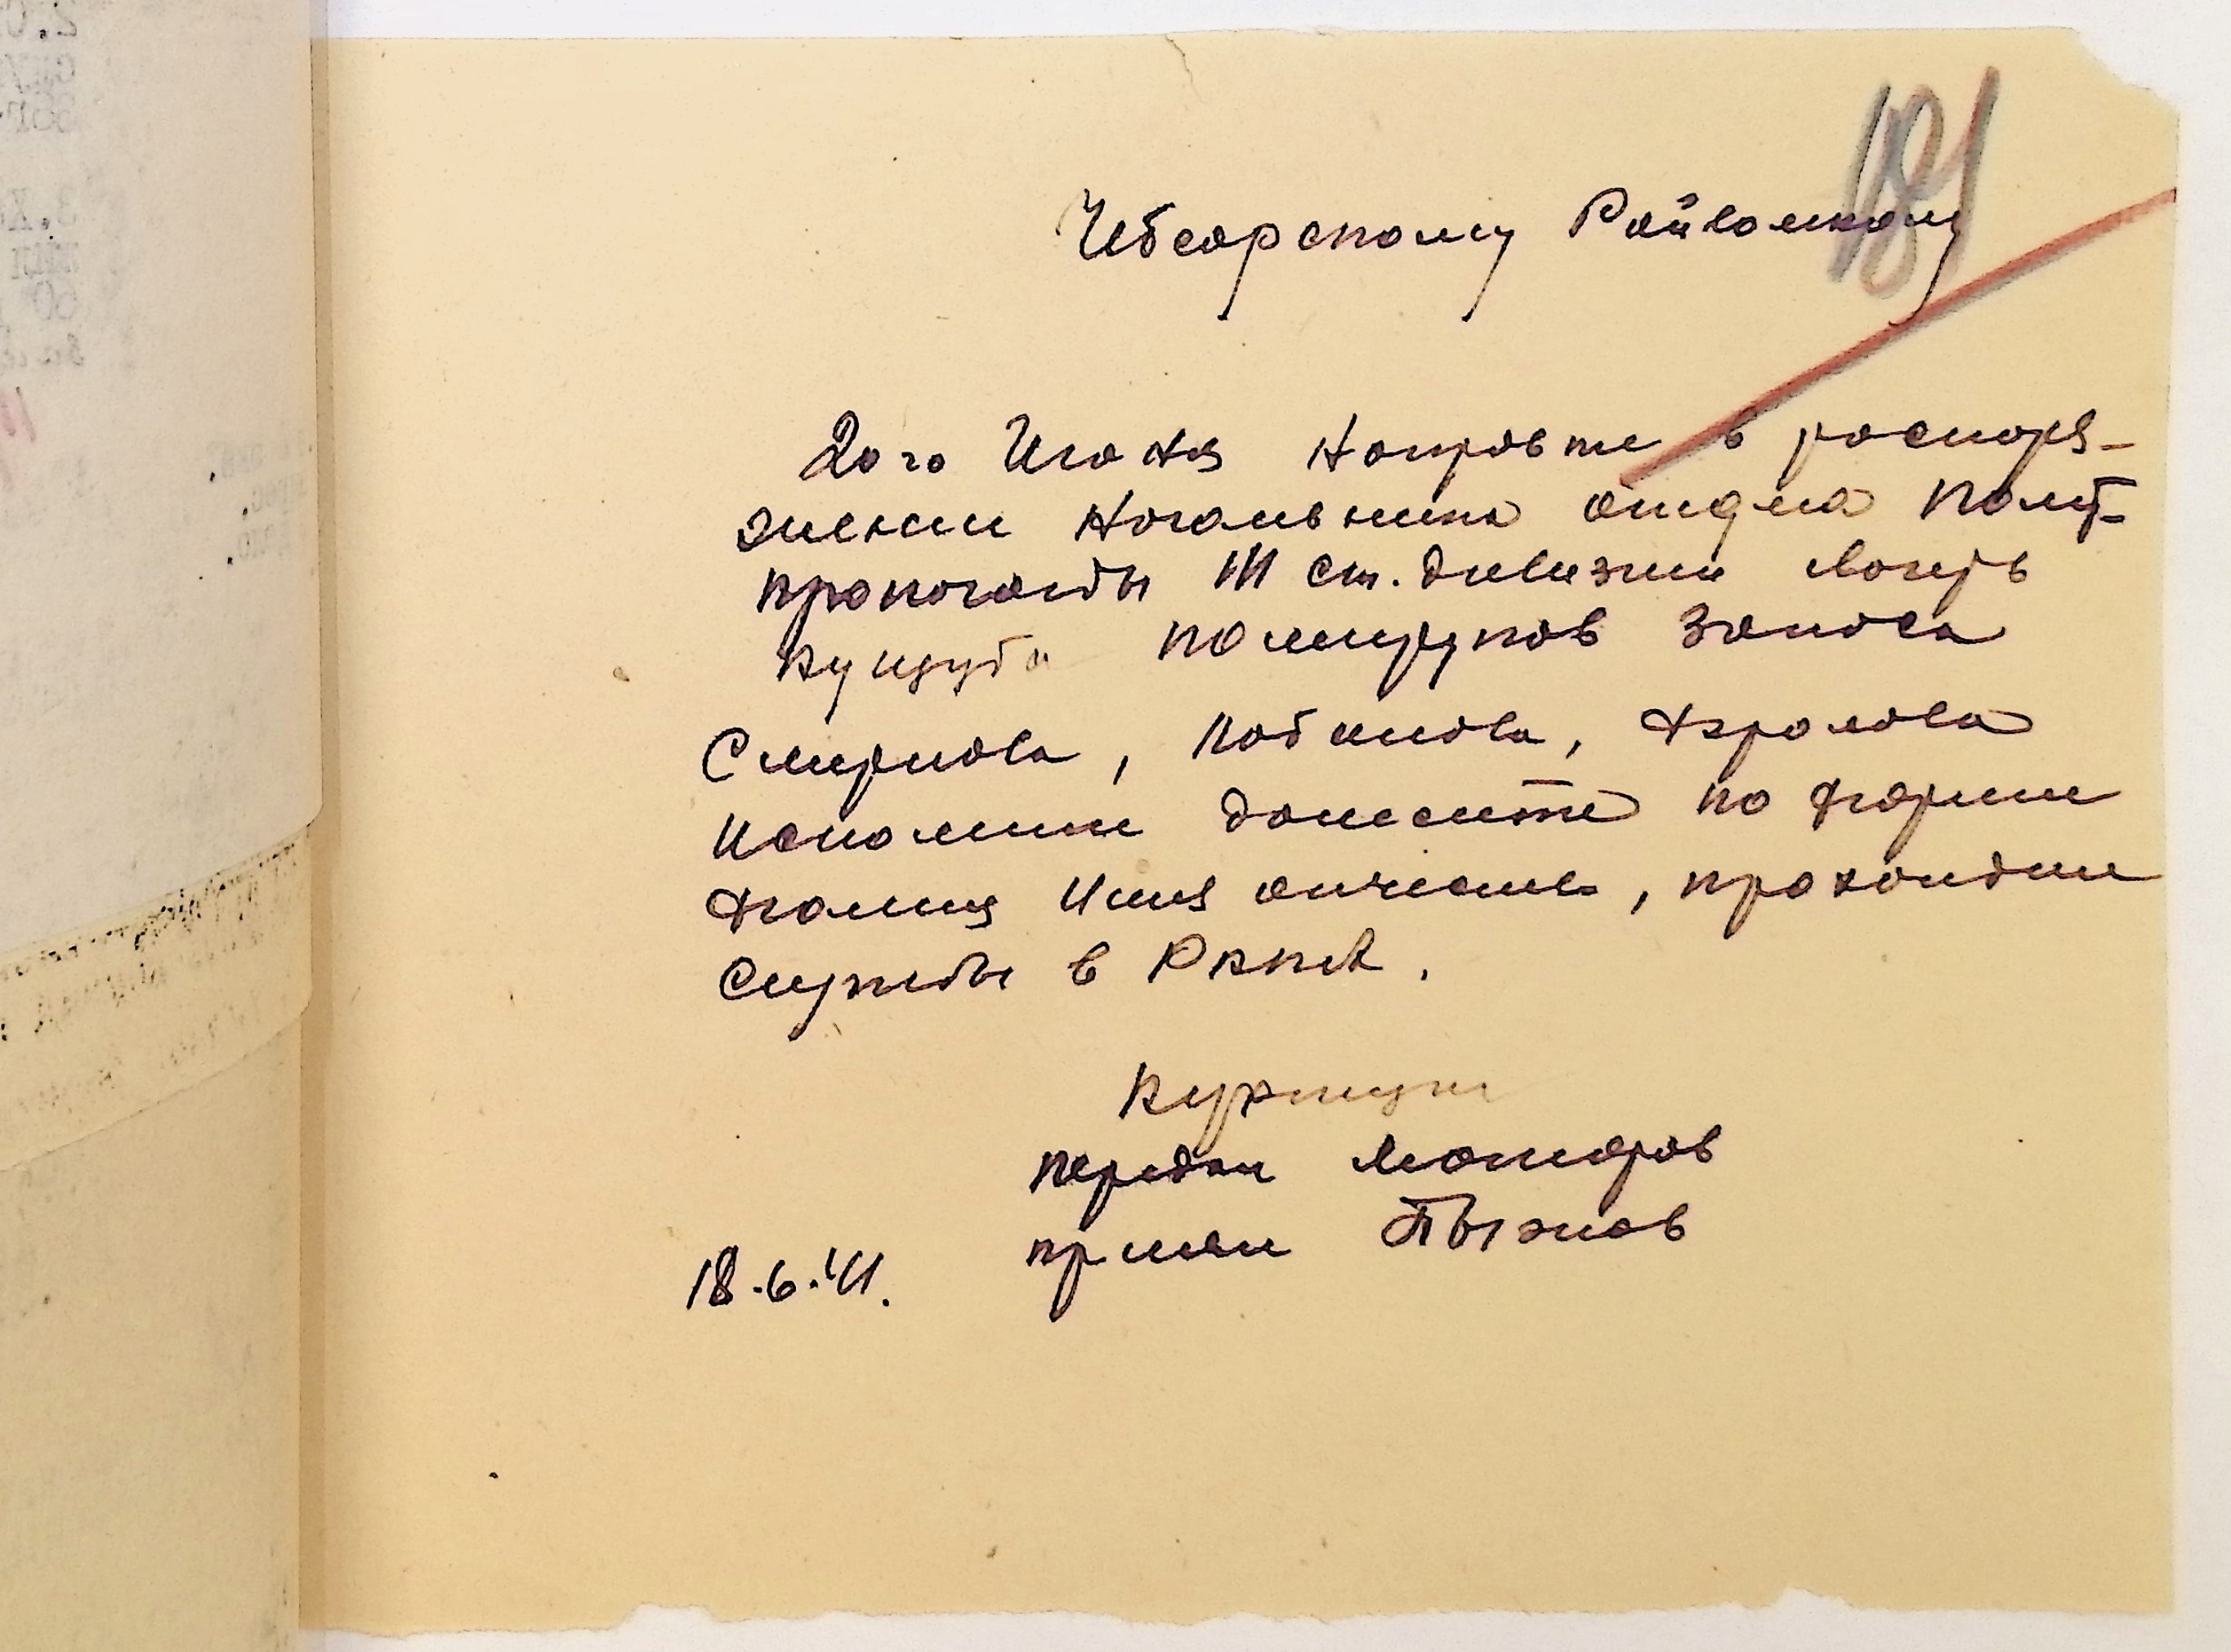 181
Чебсарскому Райвоенкому
20го Июня Направте в распоря-
жении Начальника отдела Полит-
пропоганды 111 ст. дивизии лагерь
Кущуба политруков запаса
Смирнова, Кабанова, Фролова
Исполнени донесите по форме
Фамиля Имя отчество, прохожден
службы в РККА.
передал Моторов
принял Пызнов
18.6.41.